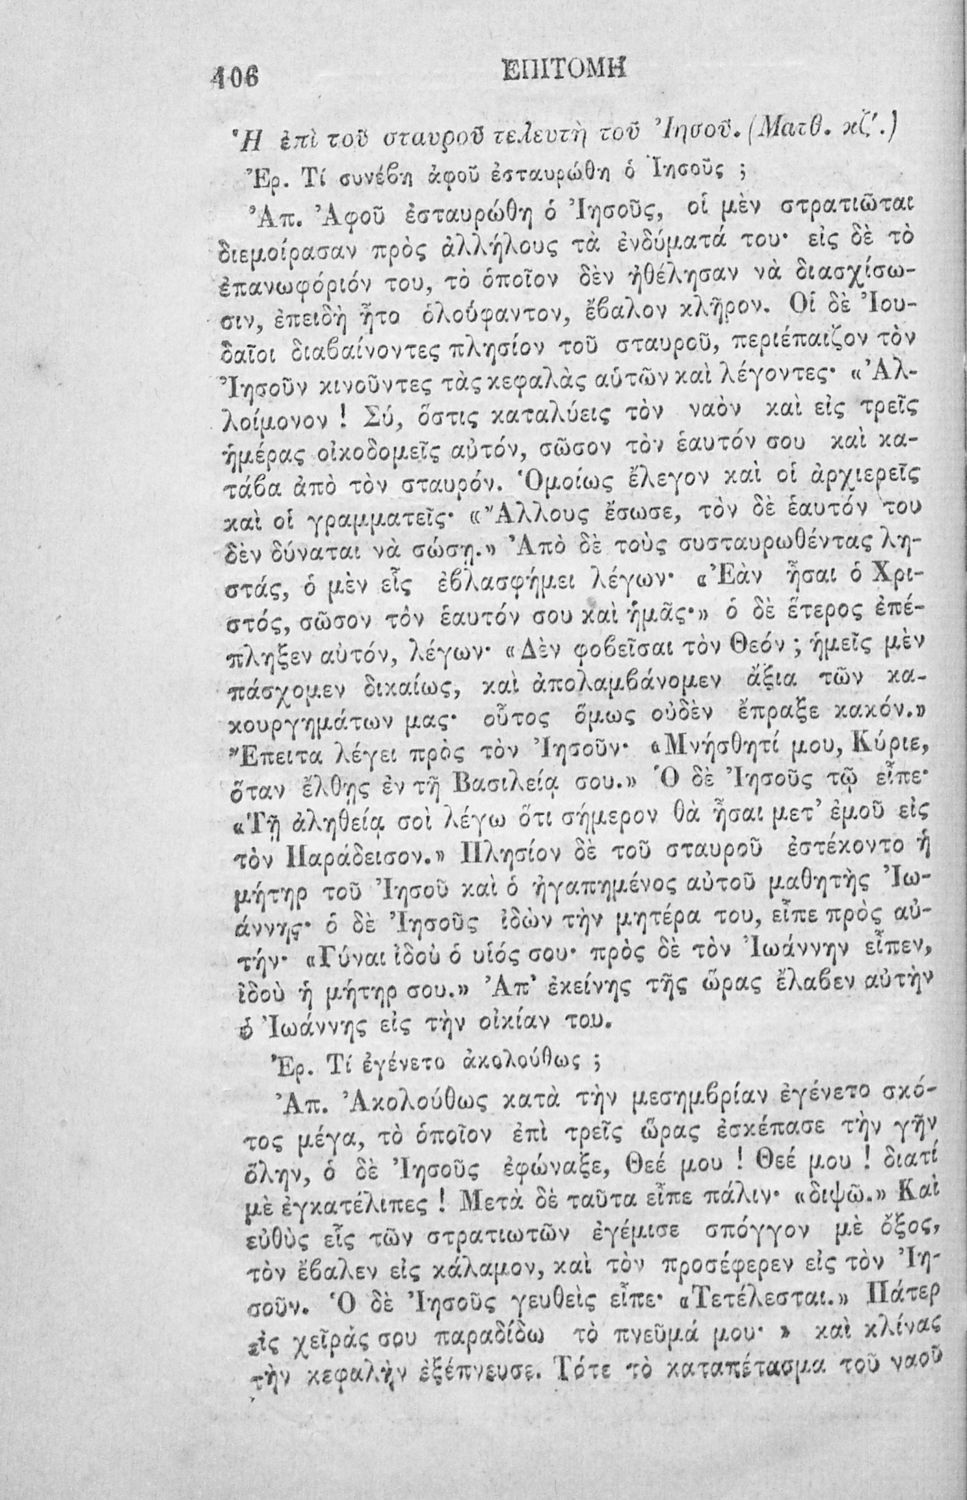 106
ΕΠΙΤΟΜΗ
Ἡ ἐπὶ τοῦ σταυροῦ τελευτὴ τοῦ Ἰησοῦ. (Ματθ. κζʹ.)
Ἐρ. Τί συνέβη ἀφοῦ ἐσταυρώθη ὁ Ἰησοῦς ;
Ἀπ. Ἀφοῦ ἐσταυρώθη ὁ Ἰησοῦς, οἱ μὲν στρατιῶται
διεμοίρασαν πρὸς ἀλλήλους τὰ ἐνδύματά του· εἰς δὲ τὸ
ἐπανωφόριόν του, τὸ ὁποῖον δὲν ἠθέλησαν νὰ διασχίσω-
σιν, ἐπειδὴ ἦτο ὁλούφαντον, ἔβαλον κλῆρον. Οἱ δὲ Ἰου-
δαῖοι διαβαίνοντες πλησίον τοῦ σταυροῦ, περιέπαιζον τὸν
Ἰησοῦν κινοῦντες τὰς κεφαλὰς αὑτῶν καὶ λέγοντες· «Ἀλ-
λοίμονον ! Σύ, ὅστις καταλύεις τὸν ναὸν καὶ εἰς τρεῖς
ἡμέρας οἰκοδομεῖς αὐτόν, σῶσον τὸν ἑαυτόν σου καὶ κα-
τάβα ἀπὸ τὸν σταυρόν. Ὁμοίως ἔλεγον καὶ οἱ ἀρχιερεῖς
καὶ οἱ γραμματεῖς· «Ἄλλους ἔσωσε, τὸν δὲ ἑαυτόν του
δὲν δύναται νὰ σώσῃ.» Ἀπὸ δὲ τοὺς συσταυρωθέντας λῃ-
στάς, ὁ μὲν εἷς ἐβλασφήμει λέγων· «Ἐὰν ἦσαι ὁ Χρι-
στός, σῶσον τὸν ἑαυτόν σου καὶ ἡμᾶς·» ὁ δὲ ἕτερος ἐπέ-
πληξεν αὐτόν, λέγων· «Δὲν φοβεῖσαι τὸν Θεόν ; ἡμεῖς μὲν
πάσχομεν δικαίως, καὶ ἀπολαμβάνομεν ἄξια τῶν κα-
κουργημάτων μας· οὗτος ὅμως οὐδὲν ἔπραξε κακόν.»
Ἔπειτα λέγει πρὸς τὸν Ἰησοῦν· «Μνήσθητί μου, Κύριε,
ὅταν ἔλθῃς ἐν τῇ Βασιλείᾳ σου.» Ὁ δὲ Ἰησοῦς τῷ εἶπε·
«Τῇ ἀληθείᾳ σοὶ λέγω ὅτι σήμερον θὰ ἦσαι μετ’ ἐμοῦ εἰς
τὸν Παράδεισον.» Πλησίον δὲ τοῦ σταυροῦ ἐστέκοντο ἡ
μήτηρ τοῦ Ἰησοῦ καὶ ὁ ἠγαπημένος αὐτοῦ μαθητὴς Ἰω-
άννης· ὁ δὲ Ἰησοῦς ἰδὼν τὴν μητέρα του, εἶπε πρὸς αὐ-
τήν· «Γύναι ἰδοὺ ὁ υἱός σου· πρὸς δὲ τὸν Ἰωάννην εἶπεν,
ἰδοὺ ἡ μήτηρ σου.» Ἀπ’ ἐκείνης τῆς ὥρας ἔλαβεν αὐτὴν
ὁ Ἰωάννης εἰς τὴν οἰκίαν του.
Ἐρ. Τί ἐγένετο ἀκολούθως ;
Ἀπ. Ἀκολούθως κατὰ τὴν μεσημβρίαν ἐγένετο σκό-
τος μέγα, τὸ ὁποῖον ἐπὶ τρεῖς ὥρας ἐσκέπασε τὴν γῆν
ὅλην, ὁ δὲ Ἰησοῦς ἐφώναξε, Θεέ μου ! Θεέ μου ! διατί
μὲ ἐγκατέλιπες ! Μετὰ δὲ ταῦτα εἶπε πάλιν· «διψῶ.» Καὶ
εὐθὺς εἷς τῶν στρατιωτῶν ἐγέμισε σπόγγον μὲ ὄξος,
τὸν ἔβαλεν εἰς κάλαμον, καὶ τὸν προσέφερεν εἰς τὸν Ἰη-
σοῦν. Ὁ δὲ Ἰησοῦς γευθεὶς εἶπε· «Τετέλεσται.» Πάτερ
εἰς χεῖράς σου παραδίδω τὸ πνεῦμά μου· » καὶ κλίνας
τὴν κεφαλὴν ἐξέπνευσε. Τότε τὸ καταπέτασμα τοῦ ναοῦ